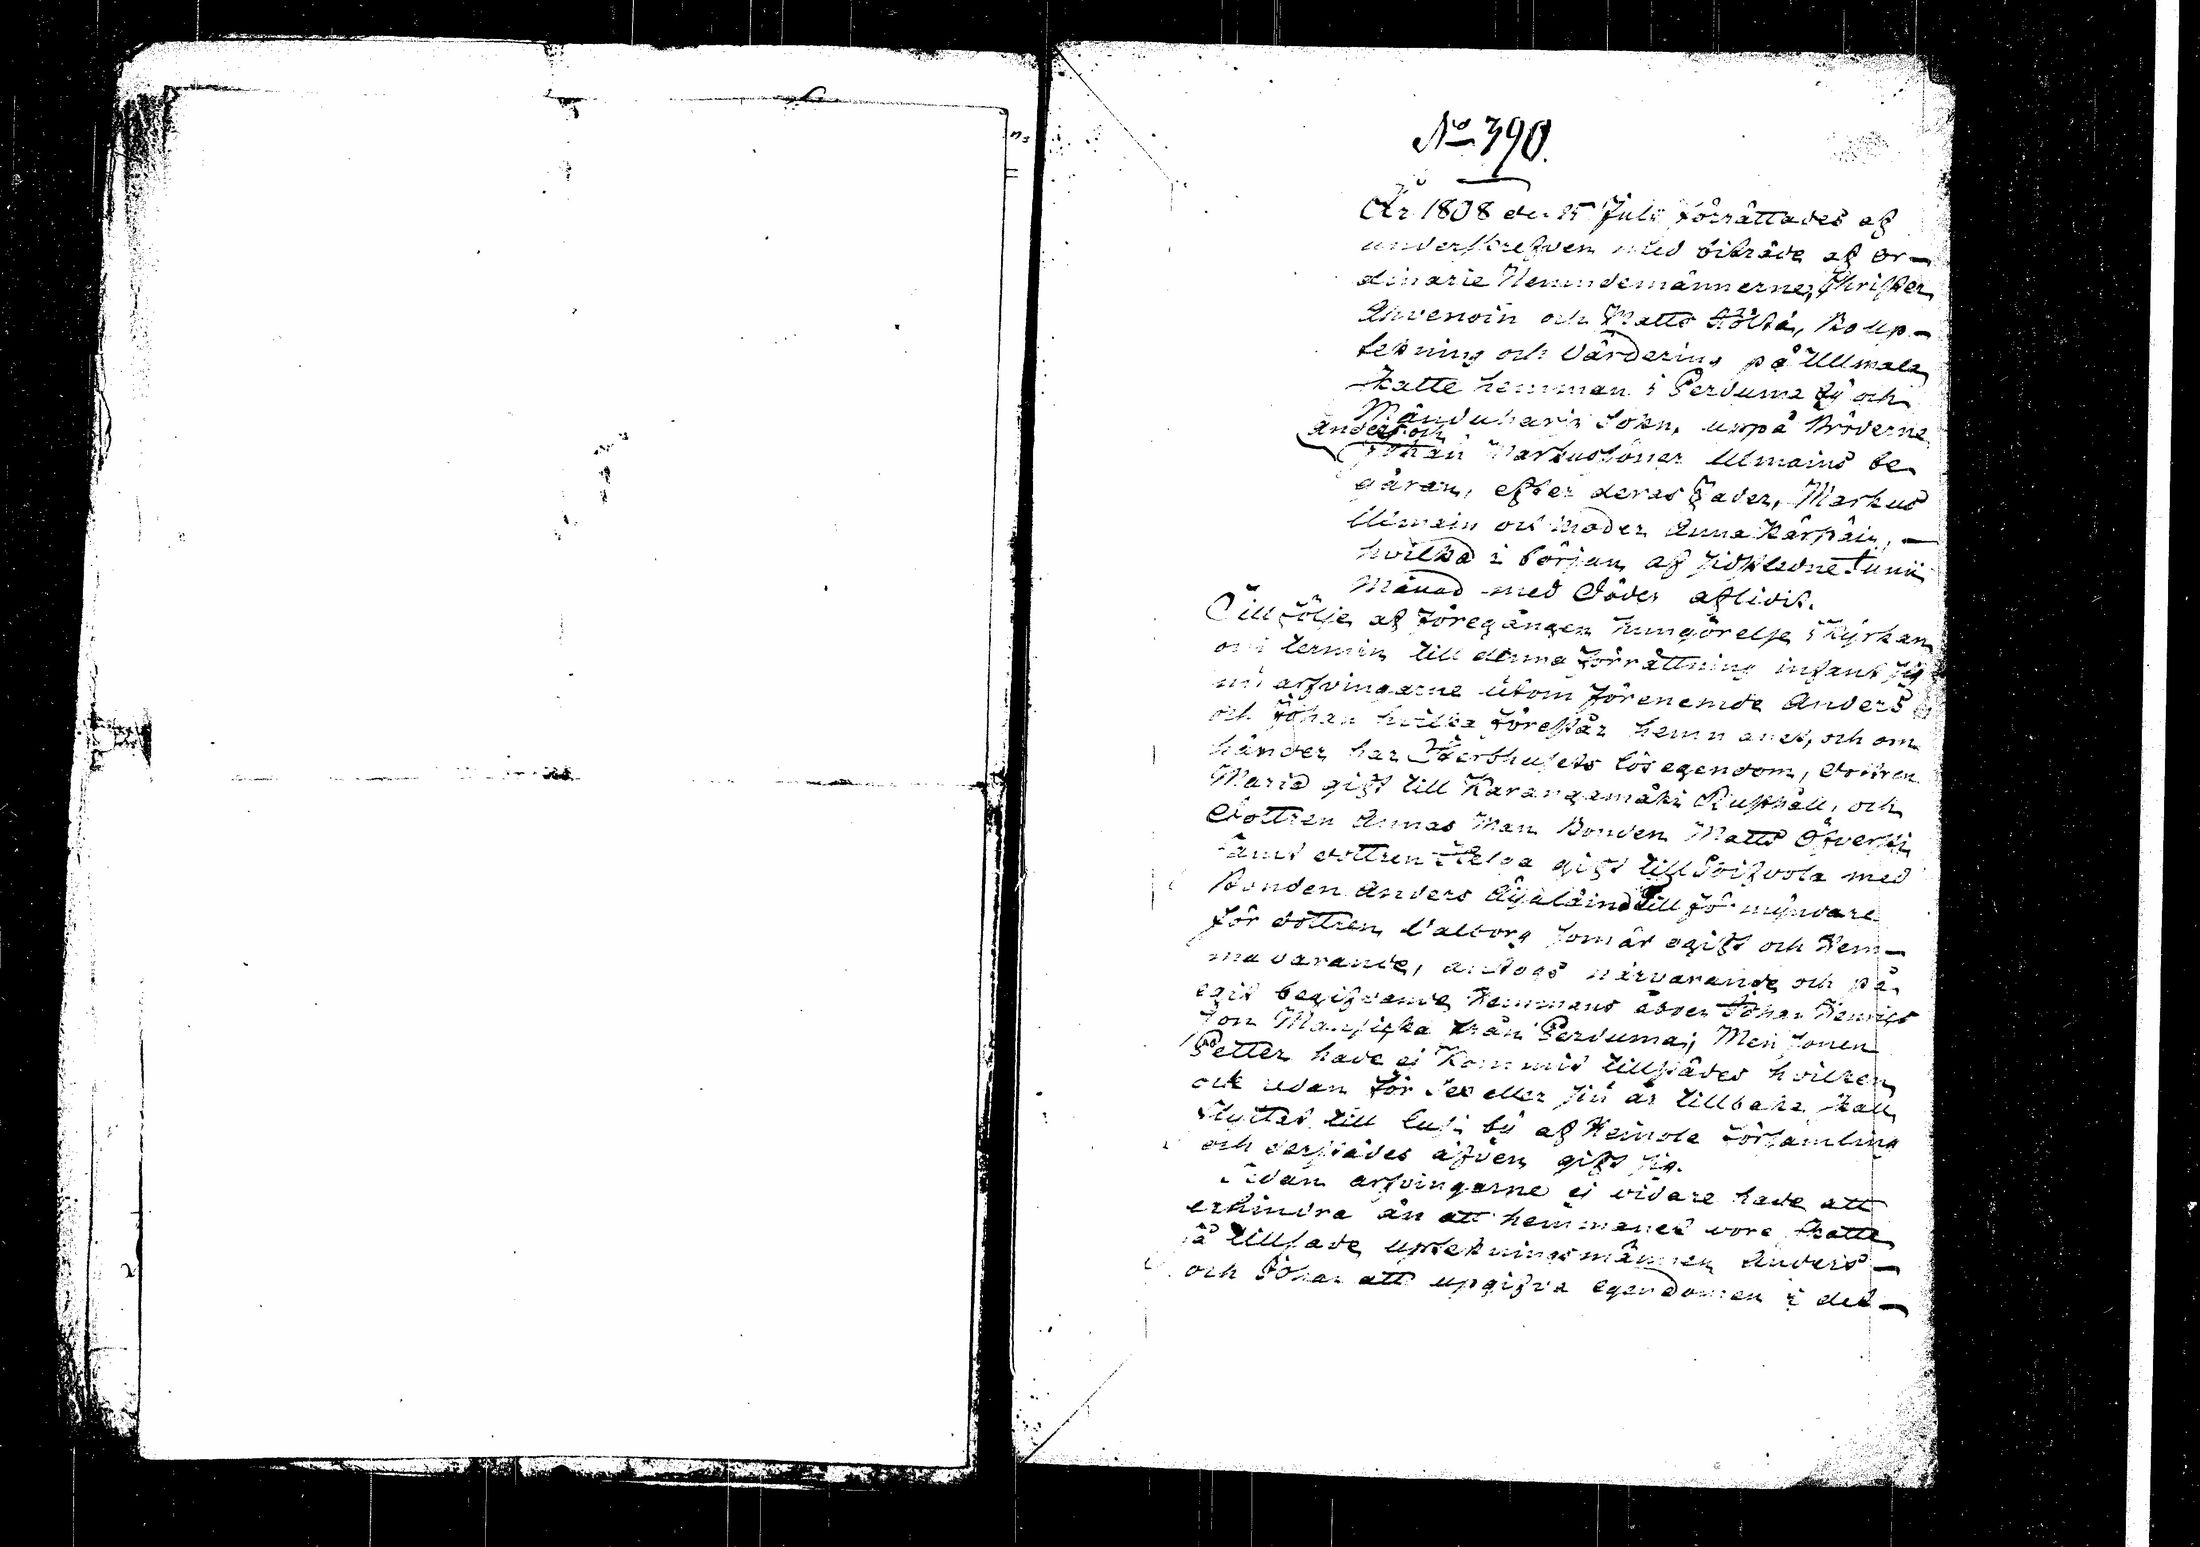 No 390.
År 1808 den 15 Juli förrättades af
underskrefven med biträde af or-
dinarie Nemndemännerne, Christer
Ahvenoin och Matts Hölttä, Bo up-
tekning och Värdering på Ullmala
skatte hemman i Perduma by och
Mänduharju Sokn, uppå Bröderne
Anders och
Johan Markussöner Ulmains be
gäran, efter deras Fader, Markus
Ulmain och moder Anna Kärpäin, -
hvilka i början af sidstledne Junii
Månad med Döden aflidit.
Till följe af föregången kungörelse i Kyrkan
om termin till denna förrättning infant sig
nu arfvingarne utom förenemde Anders
och Johan hvilka förestår hemmanet, och om
händer har Sterbhusets lösegendom, dottren
Maria gift till Karangamäki Rusthåll, och
Dottren Annas Man Bonden Matts
samt dottren Helga gift till Soifvola med
Bonden Anders till förmyndare
för dottren Valborg som är ogift och Hem-
ma varande, antogs närvarande och på
egit begifvande Hemmans åboen Johan Henrics
son Mansicka från Perduma; Men sonen
Petter hade ej Kommit tillstädes hvilken
ock redan för Sex eller siu år tillbaka skall
flyttat till Lusi by af Heinola församling
och derstädes äfven gift sig.
Sedan arfvingarne ej vidare hade att
erhindra än att hemmanet vore skatte
så tillsade uptekningsmännen Anders -
och Johan att upgifva egendomen i det -